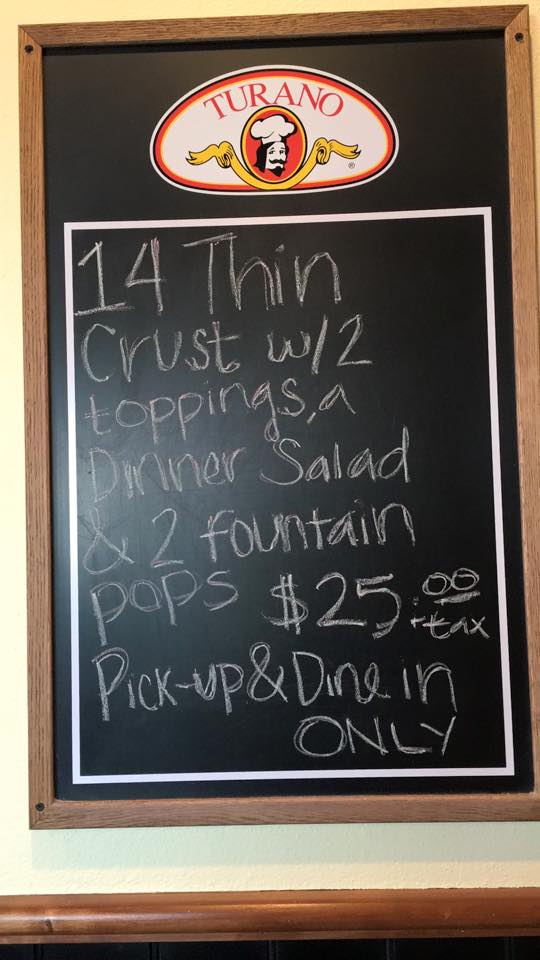 TURANO
®
14 Thin
Crust w/2
toppings, a
Dinner Salad
& 2 fountain
pops $25.00
+tax
Pick-up & Dine in
ONLY